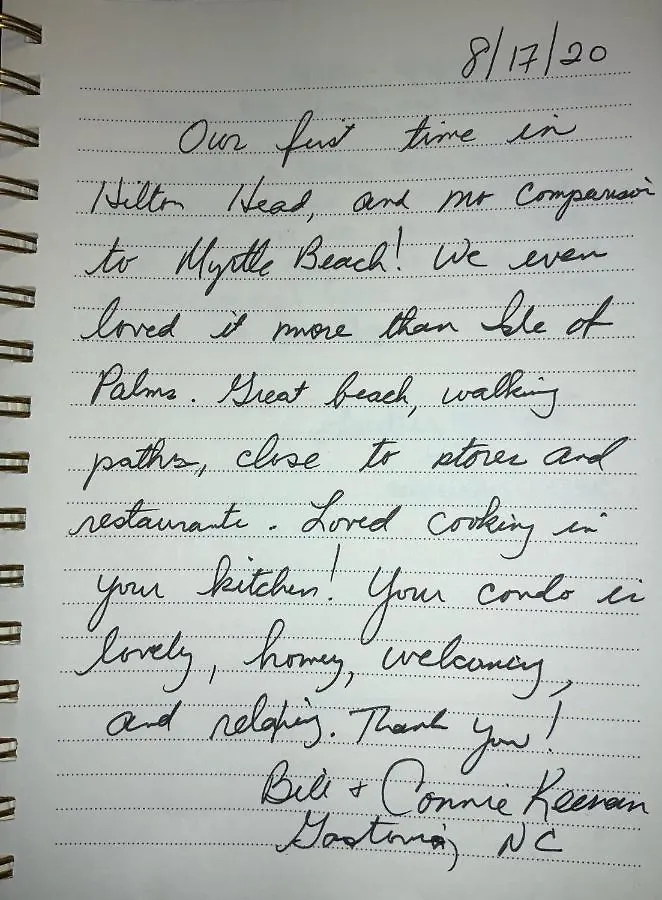 8/17/20
Our first time in
Hilton Head, and no comparison
to Myrtle Beach! We even
loved it more than Isle of
Palms. Great beach, walking
paths, close to stores and
restaurants. Loved cooking in
your kitchen! Your condo is
lovely, homey, welcoming,
and relaxing. Thank you!
Bill + Connie Keenan
Gastonia, NC